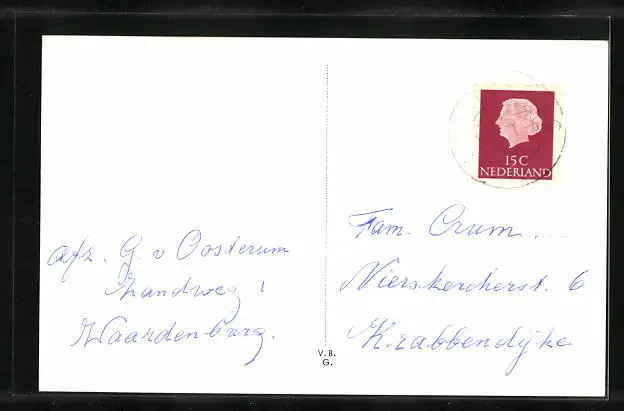 15 C
NEDERLAND
afz. G. v Oosterum
Zandweg 1
Waardenburg.
Fam. Crum.
Nierskercherst. 6
Krabbendijke
V. B.
G.